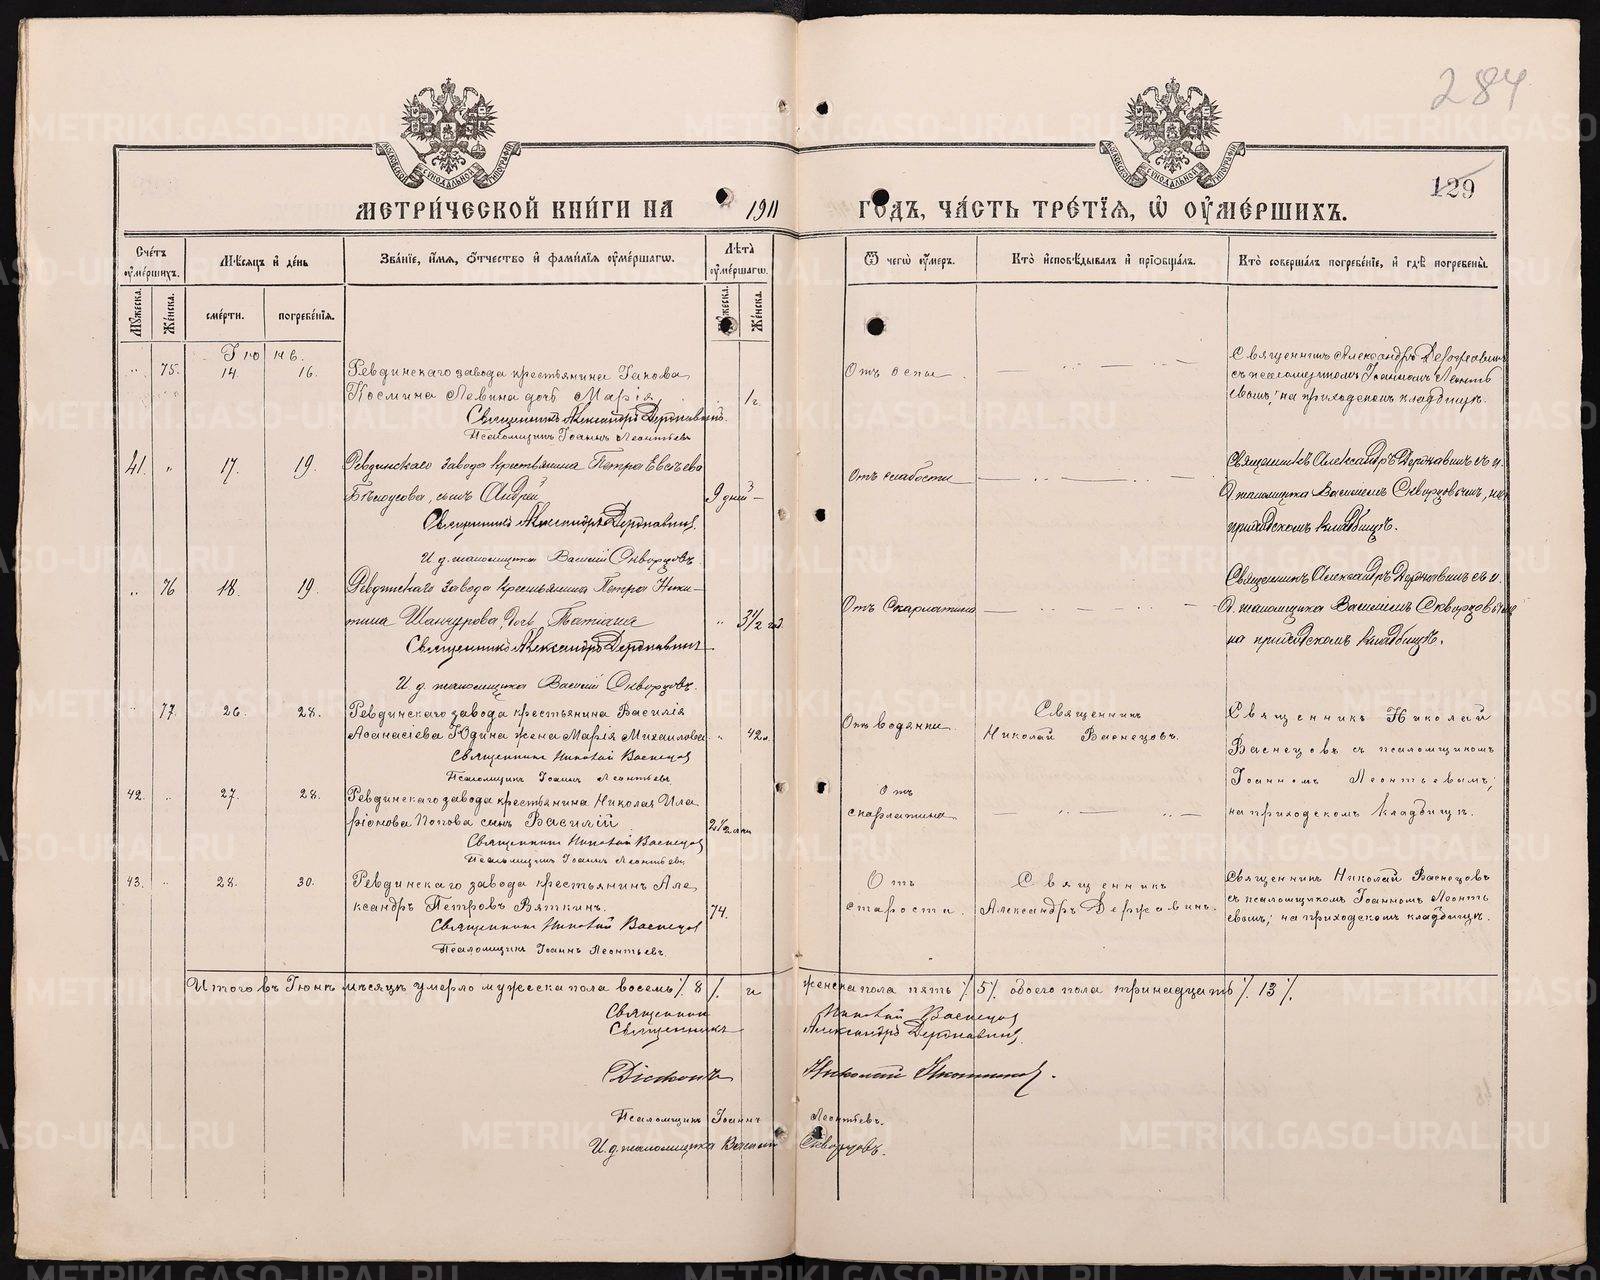 284
129
МЕТРИ́ЧЕСКОЙ КНИ́ГИ НА 1911 ГО́ДЪ, ЧА́СТЬ ТРЕ́ТЇѦ, Ѡ ОУМЕ́РШИХЪ.
Сче́тъ оуме́ршихъ.
Мѣ́сяцъ и де́нь
Зва́нїе, и́мѧ, о́тчество и фами́лїѧ оуме́ршагѡ.
Лѣ́та оуме́ршагѡ.
Ѿ чегѡ̀ оу́меръ.
Кто̀ и҆сповѣ́дывалъ и҆ прїѡбща́лъ.
Кто̀ соверша́лъ погребе́нїе, и҆ гдѣ̀ погребены̀.
Мꙋ́жеска.
Же́нска.
сме́рти.
погребе́нїѧ.
Мꙋ́жеска.
Же́нска.
Іюнь.
75. 14. 16. Ревдинскаго завода крестьянина Іакова
Космина Левина дочь Марія 1 г.
Священникъ Александръ Державинъ.
Псаломщикъ Іоаннъ Леонтьевъ
Отъ оспы.
Священникъ Александръ Державинъ
съ псаломщикомъ Іоанномъ Леонть
евымъ; на приходскомъ кладбищѣ.
41. " 17. 19. Ревдинскаго завода крестьянина Петра Евсѣева
Бѣлоусова, сынъ Андрей 9 дней
Священникъ Александръ Державинъ.
И. д. псаломщика Василій Скворцовъ
Отъ слабости
Священникъ Александръ Державинъ съ и.
д. псаломщика Василіемъ Скворцовымъ, на
приходскомъ кладбищѣ.
76 18. 19. Ревдинскаго завода крестьянина Петра Ники-
тина Шанцурова, дочь Татіана " 3 1/2 год
Священникъ Александръ Державинъ
И. д. псаломщика Василій Скворцовъ.
Отъ Скарлатины
Священникъ Александръ Державинъ съ и.
д. псаломщика Василіемъ Скворцовымъ
на приходскомъ кладбищѣ.
77. 26. 28. Ревдинскаго завода крестьянина Василія
Аѳанасіева Юдина жена Марія Михаилова " 42 л.
Священникъ Николай Васнецов
Псаломщикъ Іоаннъ Леонтьевъ
Отъ водянки.
Священникъ
Николай Васнецовъ.
Священникъ Николай
Васнецовъ съ псаломщикомъ
Іоанномъ Леонтьевымъ;
на приходскомъ кладбищѣ.
42. " 27. 28. Ревдинскаго завода крестьянина Николая Ила-
ріонова Попова сынъ Василій 2 1/2
Священникъ Николай Васнецов
Псаломщикъ Іоаннъ Леонтьевъ
Отъ
скарлатины
43. " 28. 30. Ревдинскаго завода крестьянинъ Але
ксандръ Петровъ Вяткинъ. 74.
Священникъ Николай Васнецов
Псаломщикъ Іоаннъ Леонтьевъ.
Отъ
старости.
Священникъ
Александръ Державинъ.
Священникъ Николай Васнецовъ
съ псаломщикомъ Іоанномъ Леонть
евымъ; на приходскомъ кладбищѣ.
Итого въ Іюнѣ мѣсяцѣ умерло мужеска пола восемь /. 8 /. и женска пола пять /. 5 /. обоего пола тринадцать /. 13 /.
Священник Николай Васнецов
Священникъ Александръ Державинъ
Діаконъ Николай
Псаломщикъ Іоаннъ Леонтьевъ.
И. д. псаломщика Василій Скворцовъ.
METRIKI.GASO-URAL.RU